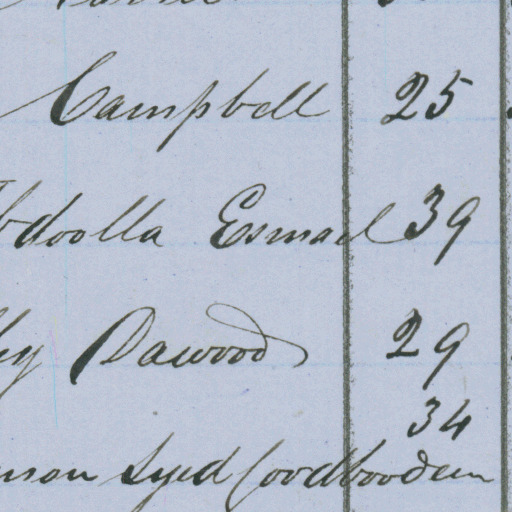 Campbell 25
Abdoolla Esmael 39
Dawood 29
34
Syed Coodboodeen